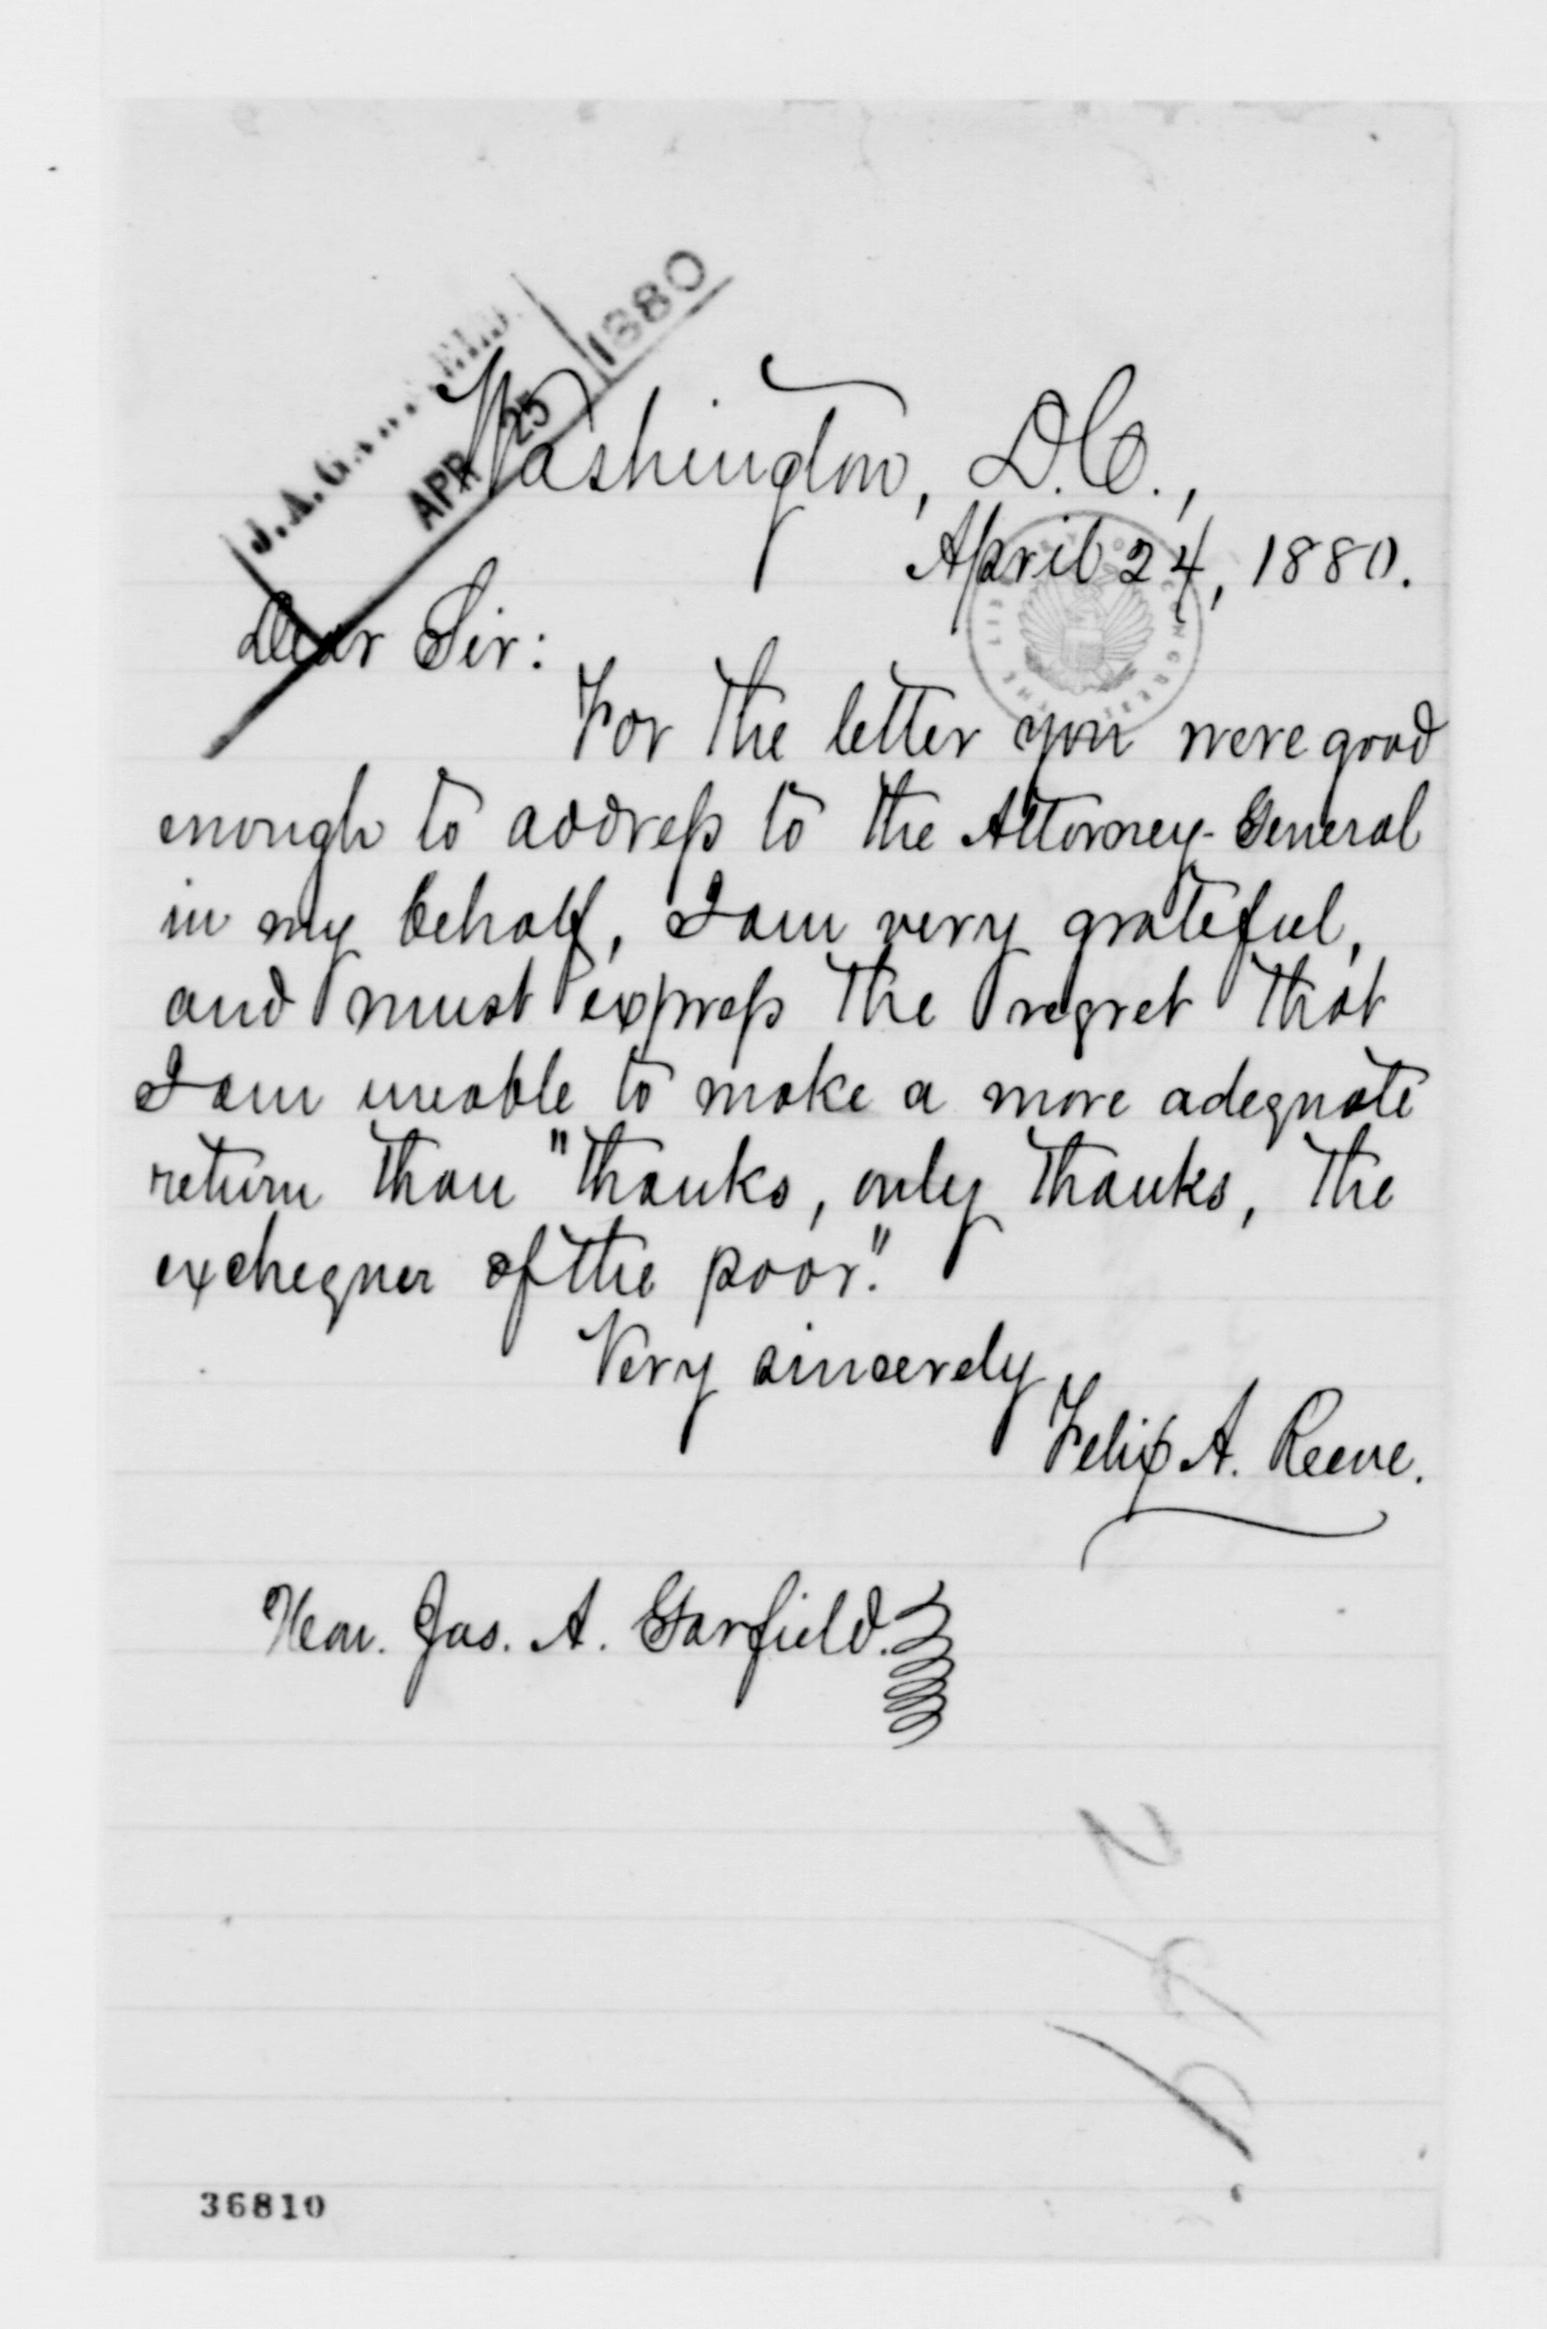 J. A. GARFIELD.
APR 25 1880
Washington, D.C.,
April 24, 1880.
Dear Sir:
For the letter you were good
enough to address to the Attorney-General
in my behalf, I am very grateful,
and must express the regret that
I am unable to make a more adequate
return than "thanks, only thanks, the
exchequer of the poor."
Very sincerely,
Felix A. Reeve.
Hon. Jas. A. Garfield.
THE LIBRARY OF CONGRESS
36810